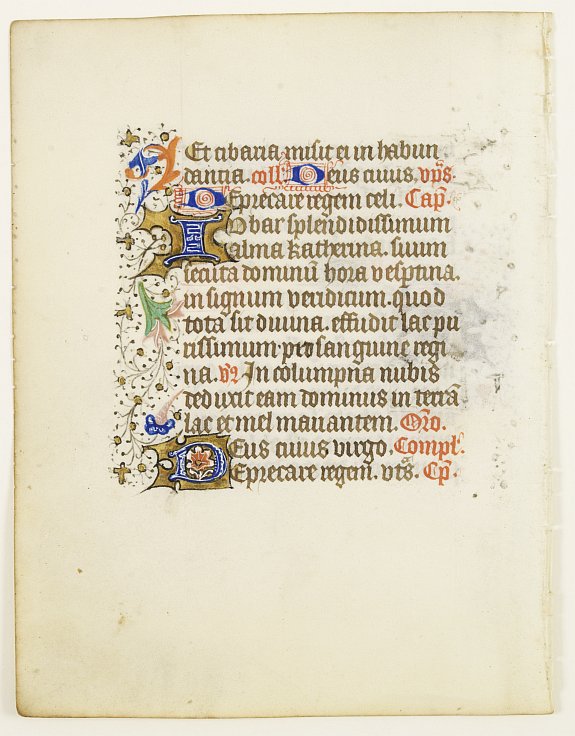 Et cibaria misit ei in habun
dantia. coll. Deus cuius. vp̄s.
Deprecare regem celi. Cap̄.
Iobar splendidissimum
alma katherina. suum
secuta dominū hora vesptina.
in signum veridicum. quod
tota sit diuina. effudit lac pu
rissimum pro sanguine regi
na. In columpna nubis
deduxit eam dominus in terrā
lac et mel manantem. Or̄o.
Deus cuius virgo. Compl̄.
Deprecare regem. vt̄s. Cp̄.